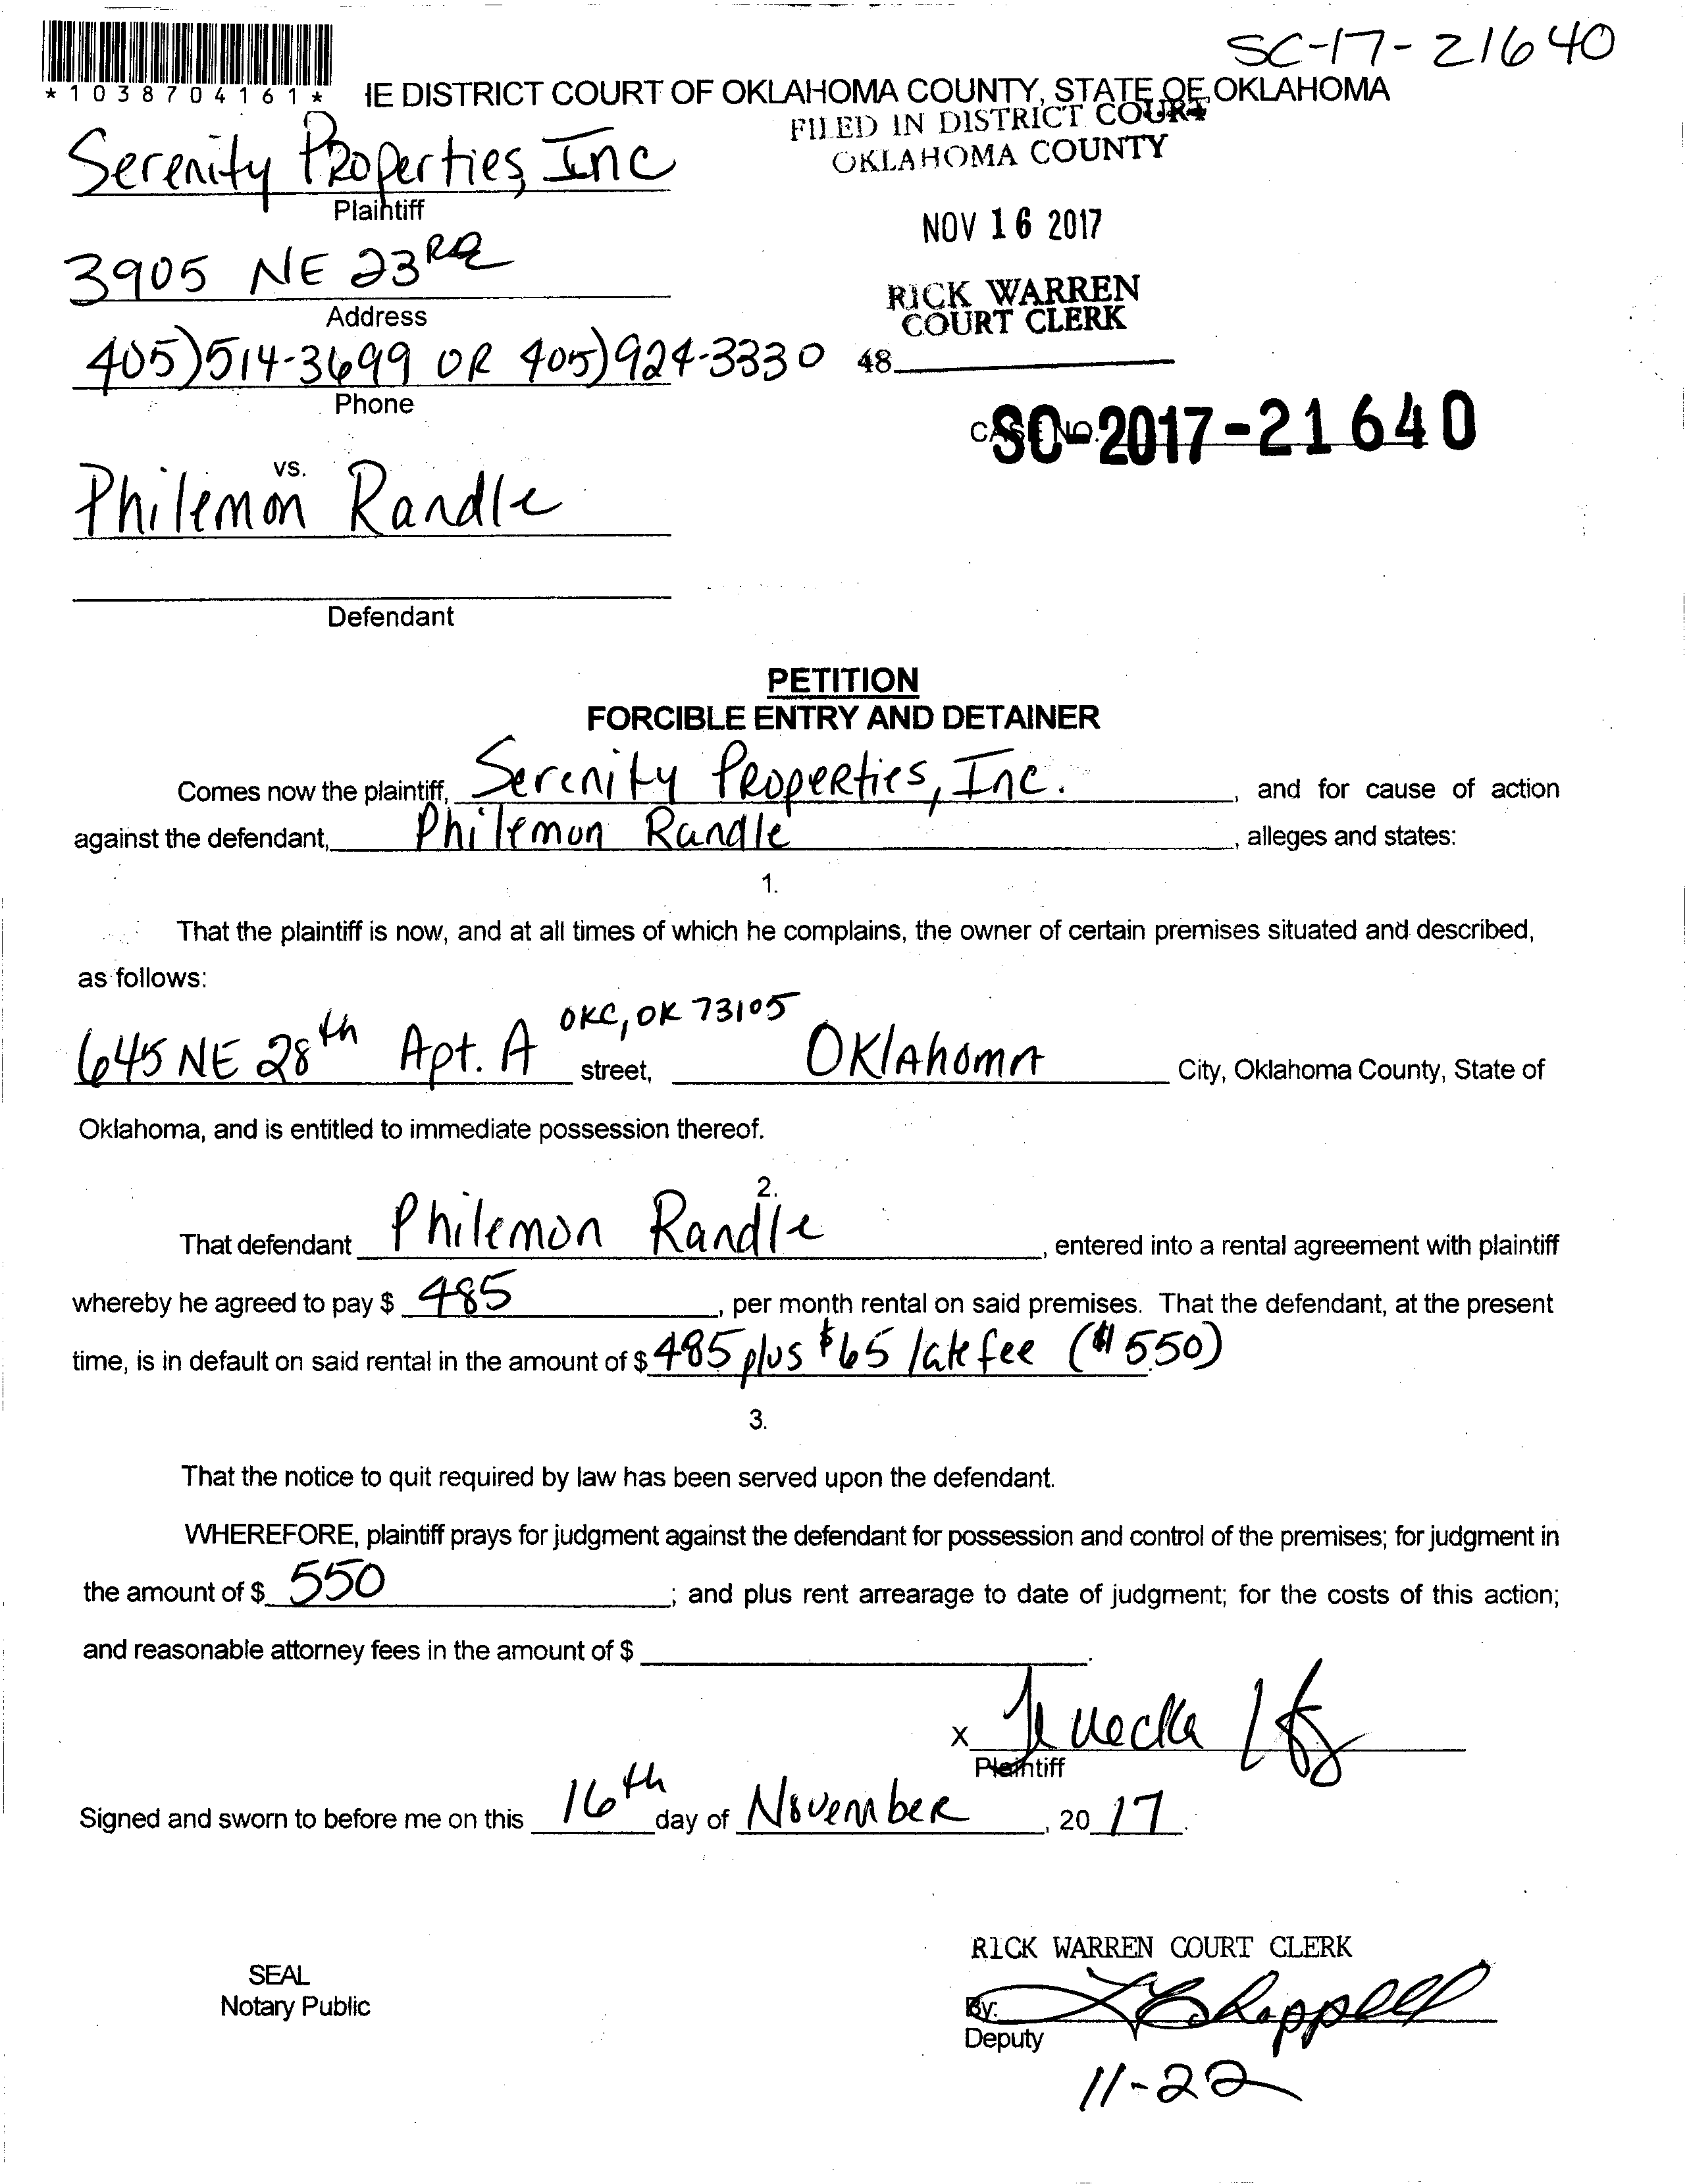 SC-17-21640
*1038704161*
IE DISTRICT COURT OF OKLAHOMA COUNTY, STATE OF OKLAHOMA
FILED IN DISTRICT COURT
OKLAHOMA COUNTY
Serenity Properties, Inc
Plaintiff
NOV 16 2017
3905 NE 23RD
Address
RICK WARREN
COURT CLERK
405)514-3699 OR 405)924-3330
48
Phone
CASE NO.
SC-2017-21640
vs.
Philemon Randle
Defendant
PETITION
FORCIBLE ENTRY AND DETAINER
Comes now the plaintiff, Serenity Properties, Inc. , and for cause of action
against the defendant, Philemon Randle , alleges and states:
1.
That the plaintiff is now, and at all times of which he complains, the owner of certain premises situated and described,
as follows:
645 NE 28th Apt. A OKC, OK 73105 street, Oklahoma City, Oklahoma County, State of
Oklahoma, and is entitled to immediate possession thereof.
2.
That defendant Philemon Randle , entered into a rental agreement with plaintiff
whereby he agreed to pay $ 485 , per month rental on said premises. That the defendant, at the present
time, is in default on said rental in the amount of $ 485 plus $65 late fee ($550)
3.
That the notice to quit required by law has been served upon the defendant.
WHEREFORE, plaintiff prays for judgment against the defendant for possession and control of the premises; for judgment in
the amount of $ 550 ; and plus rent arrearage to date of judgment; for the costs of this action;
and reasonable attorney fees in the amount of $ .
X
Plaintiff
Signed and sworn to before me on this 16th day of November , 20 17 .
RICK WARREN COURT CLERK
SEAL
Notary Public
By:
Deputy
11-22